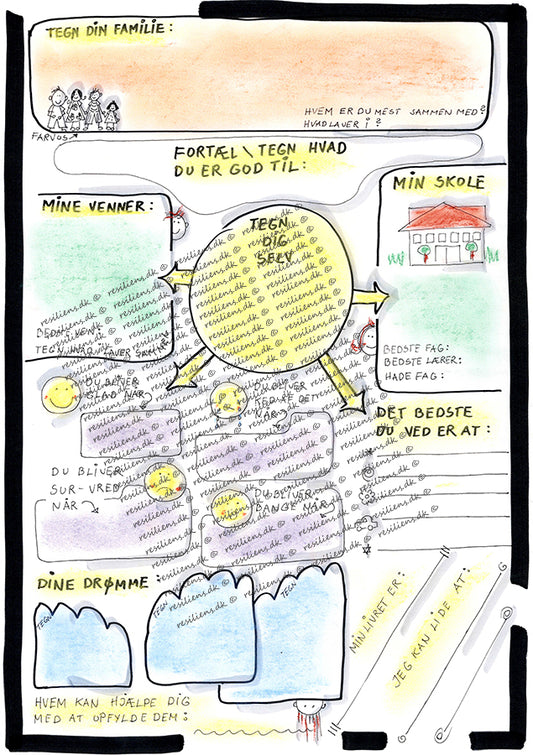 TEGN DIN FAMILIE:
HVEM ER DU MEST SAMMEN MED?
HVAD LAVER I?
FARVOS
FORTÆL \ TEGN HVAD
DU ER GOD TIL:
MINE VENNER:
MIN SKOLE
TEGN
DIG
SELV
BEDSTE VEN:
TEGN HVAD I LAVER SAMMEN
BEDSTE FAG:
BEDSTE LÆRER:
HADE FAG:
DU BLIVER
GLAD NÅR
DU BLIVER
KED AF DET
NÅR
DET BEDSTE
DU VED ER AT:
DU BLIVER
SUR-VRED
NÅR
DU BLIVER
BANGE NÅR
DINE DRØMME
TEGN
TEGN
TEGN
MIN LIVRET ER:
JEG KAN LIDE AT:
HVEM KAN HJÆLPE DIG
MED AT OPFYLDE DEM:
resiliens.dk ©